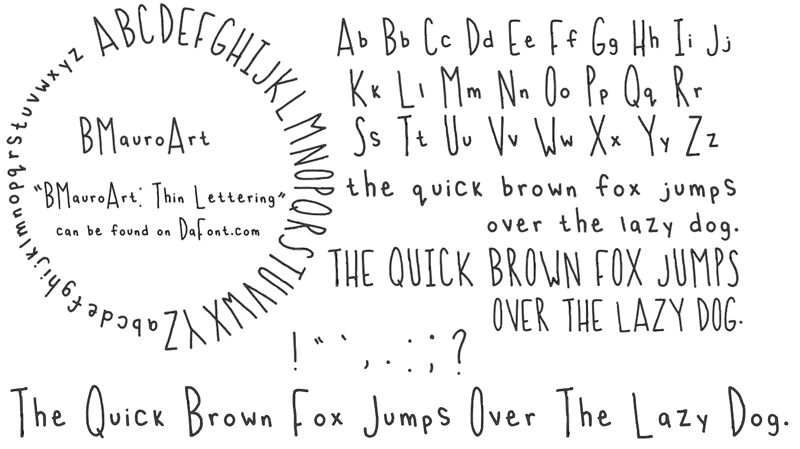 ABCDEFGHIJKLMNOPQRSTUVWXYZ
abcdefghijklmnopqrstuvwxyz
BMauroArt
"BMauroArt: Thin Lettering"
can be found on DaFont.com
Ab Bb Cc Dd Ee Ff Gg Hh Ii Jj
Kk Ll Mm Nn Oo Pp Qq Rr
Ss Tt Uu Vv Ww Xx Yy Zz
the quick brown fox jumps
over the lazy dog.
THE QUICK BROWN FOX JUMPS
OVER THE LAZY DOG.
! " ` , . : ; ?
The Quick Brown Fox Jumps Over The Lazy Dog.